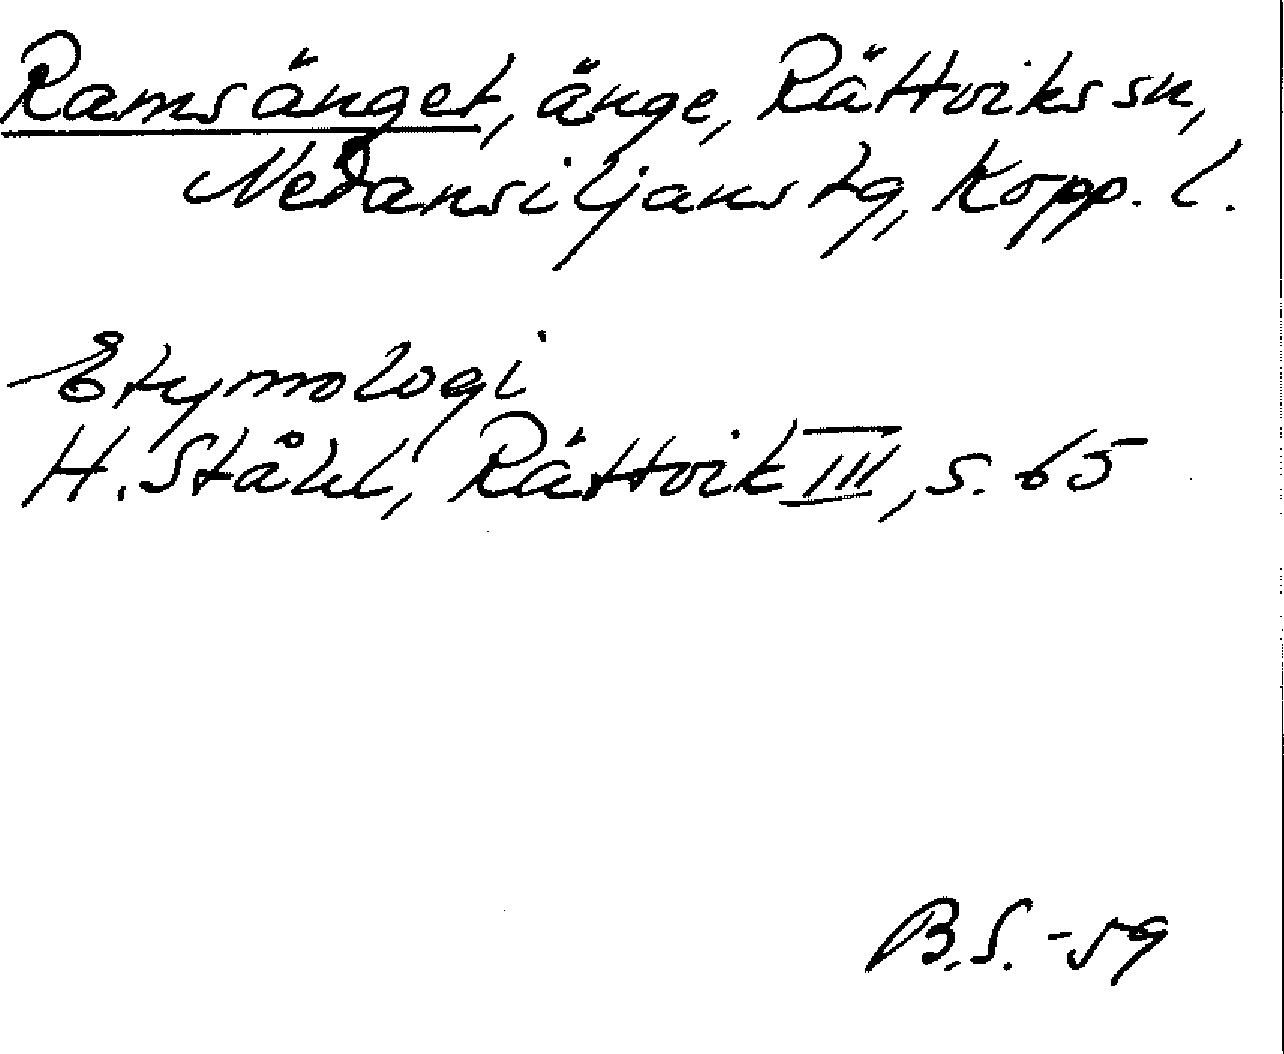 Ramsänget, änge, Rättviks sn,
Nedansiljans tg, Kopp. l.
Etymologi
H. Ståhl, Rättvik III, s. 65
B.S. -59